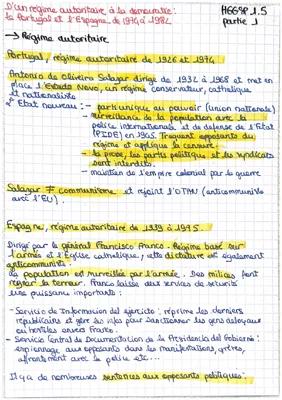 D'un régime autoritaire à la démocratie:
le Portugal et l'Espagne de 1974 à 1982
HGGSP 1.5
partie 1
→ Régime autoritaire
Portugal, régime autoritaire de 1926 et 1974
Antonio de Oliveira Salazar dirige de 1932 à 1968 et met en
place l'Estado Novo, un régime conservateur, catholique
et nationaliste
L'Etat nouveau : - parti unique au pouvoir (union nationale)
- surveillance de la population avec la
police internationale et de defense de l'Etat
(PIDE) en 1945. Traquent opposants du
régime et applique la censure.
- la presse, les partis politiques et les syndicats
sont interdits.
- maintien de l'empire colonial par la guerre
Salazar ≠ communisme et rejoint l'OTAN (anticommuniste
avec l'EU).
Espagne, régime autoritaire de 1939 à 1975.
Dirigé par le général Francisco Franco. Régime basé sur
l'armée et l'Eglise catholique, cette dictature est également
anticommuniste.
La population est surveillée par l'armée. Des milices font
régner la terreur. Franco laisse aux services de sécurité
une puissance importante :
- Servicio de Informacion del ejercito : réprime les derniers
républicains et gère les infos pour sanctionner les gens déloyaux
ou hostiles envers Franco.
- Servicio Central de Documentacion de la Presidencia del Gobierno :
espionnage aux opposants dans les manifestations, grèves,
affrontement avec la police etc...
Il y a de nombreuses sentences aux opposants politiques :